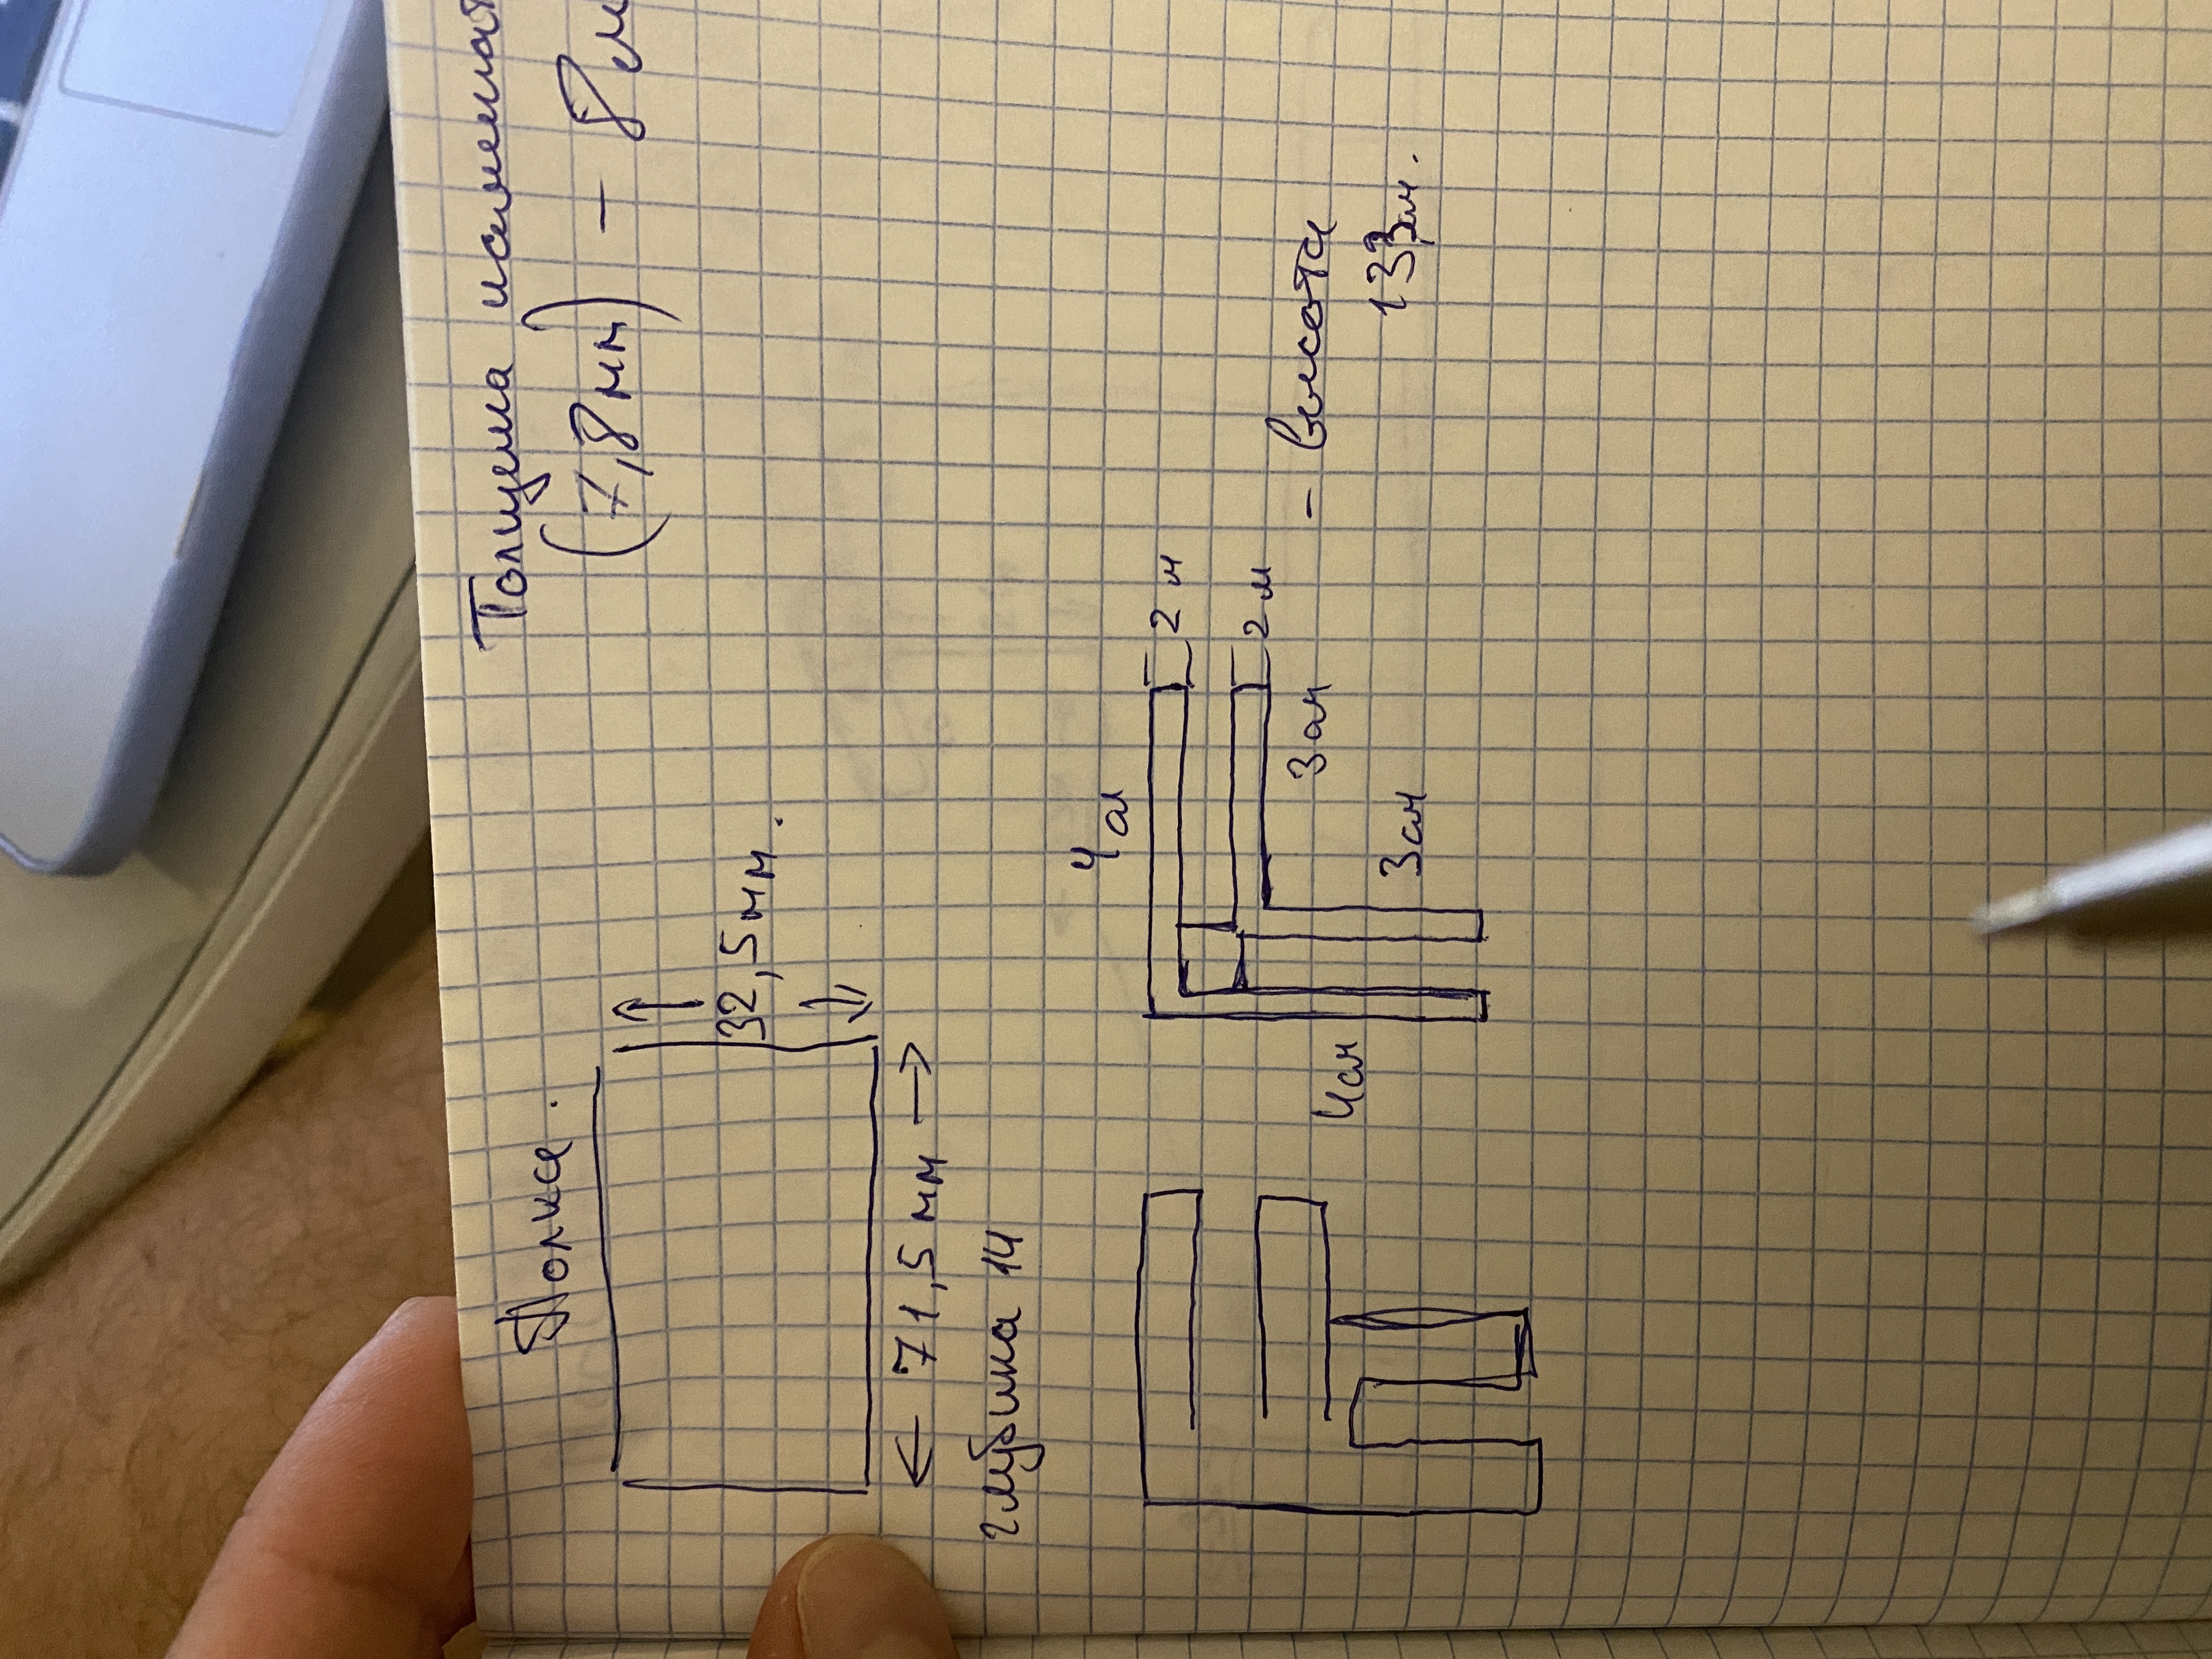 Полка.
32,5мм.
← 71,5мм →
глубина 14
Толщина
(7,8мм) – 8
4см
2м
2м
3см
3см
4см
– высота